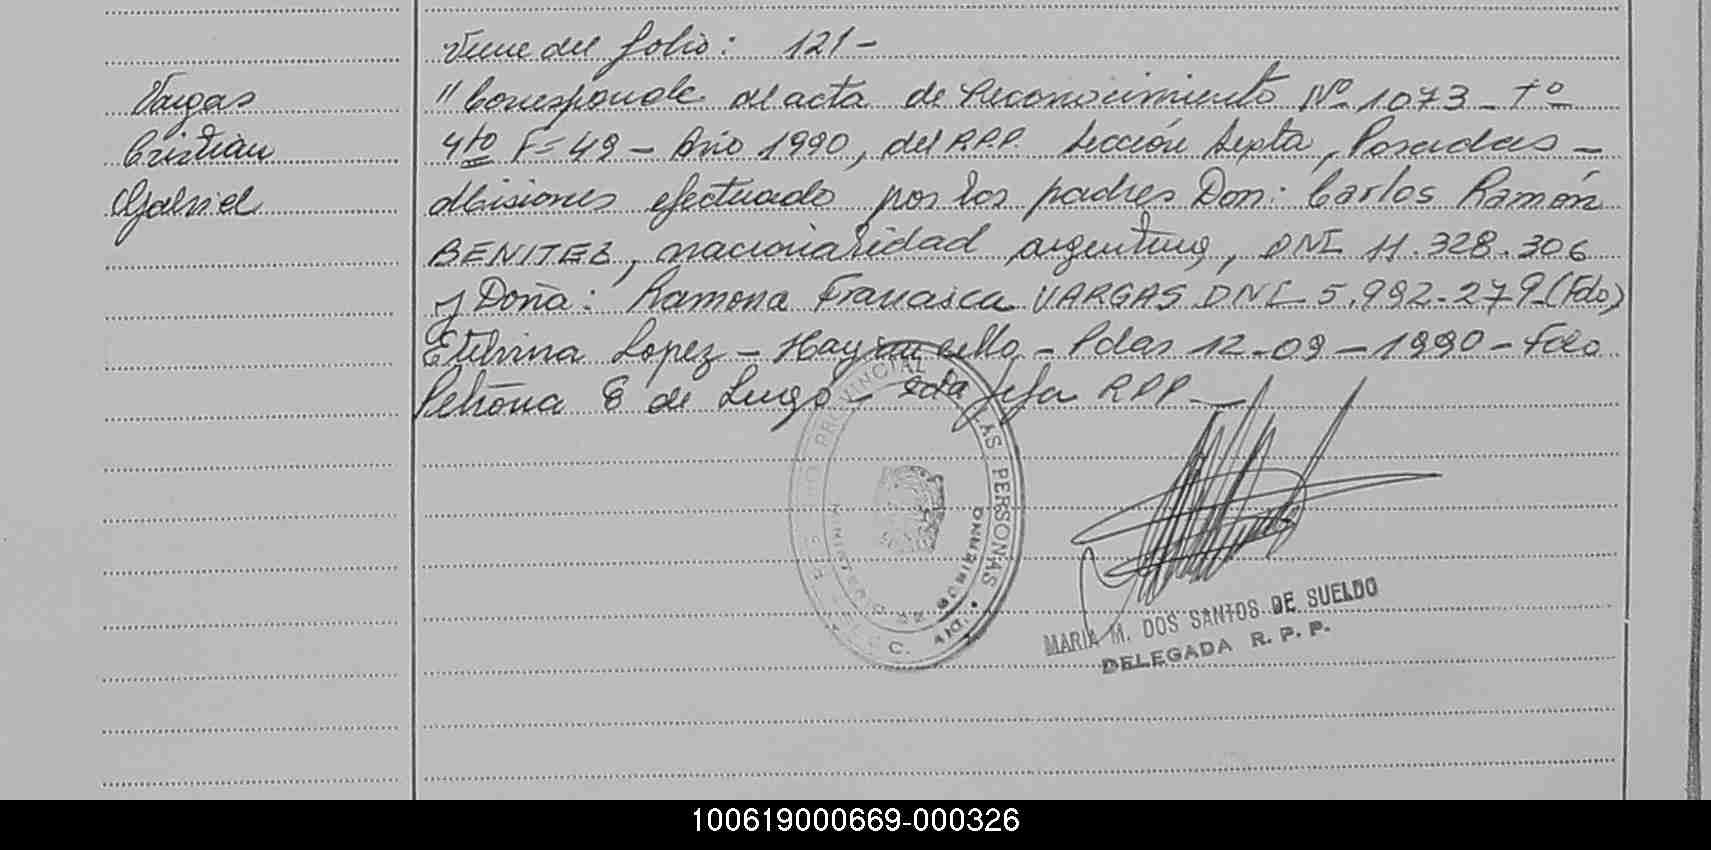 Viene del folio: 121-
Vargas
Cristian
Gabriel
"Corresponde al acta de Reconocimiento Nº 1073 - Tº
4to F= 49 - Año 1990, del R.P.P. Sección Septa, Posadas -
Misiones efectuado por los padres Don: Carlos Ramón
BENITEZ, nacionalidad argentina, DNI 11.328.306
y Doña: Ramona Francisca VARGAS DNI 5.992.279 (Fdo)
Etelvina Lopez - Hay un sello - Pdas 12-09-1990 - Fdo
Petrona E de Lugo - jefa RPP -
REGISTRO PROVINCIAL DE LAS PERSONAS
MINISTERIO DE GOBIERNO
MARIA M. DOS SANTOS DE SUELDO
DELEGADA R. P. P.
100619000669-000326